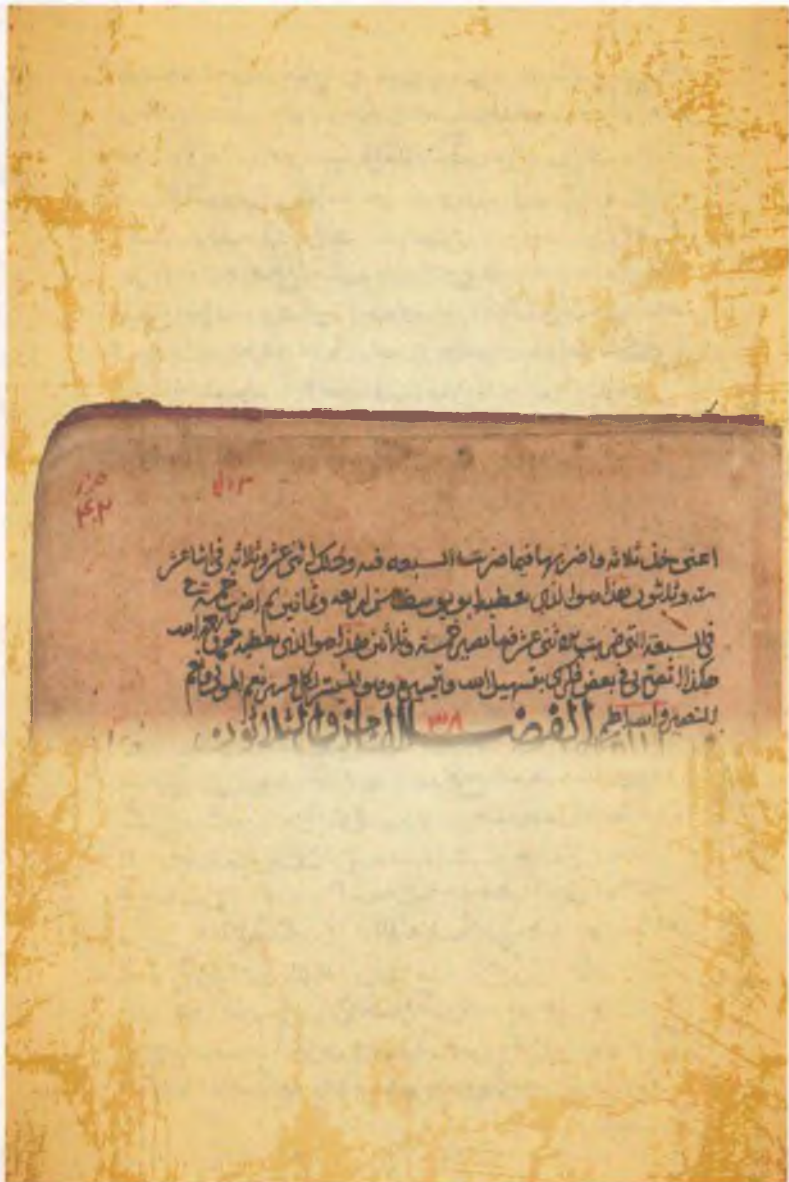 ٤٠٢
اعنى خذ ثلاثه واضربها فيما ضربت السبعه فيه وذلك اثنى عشر وثلاثه فى اثنا عشر
ت وثلثون هذا هو الذى يعطيه ابو يوسف من اربعه وثمانين ثم اضرب خمسة
فى السبعة التى ضربت فى اثنى عشر فيها تصير خمسة وثلاثين هذا هو الذى يعطيه
هكذا انفتح لى فى بعض فكرى بتسهيل الله وتيسيره وهو الميسر لكل عسر نعم المولى ونعم
النصير والله اعلم
الفصل ٣٨ الثامن والثلاثون